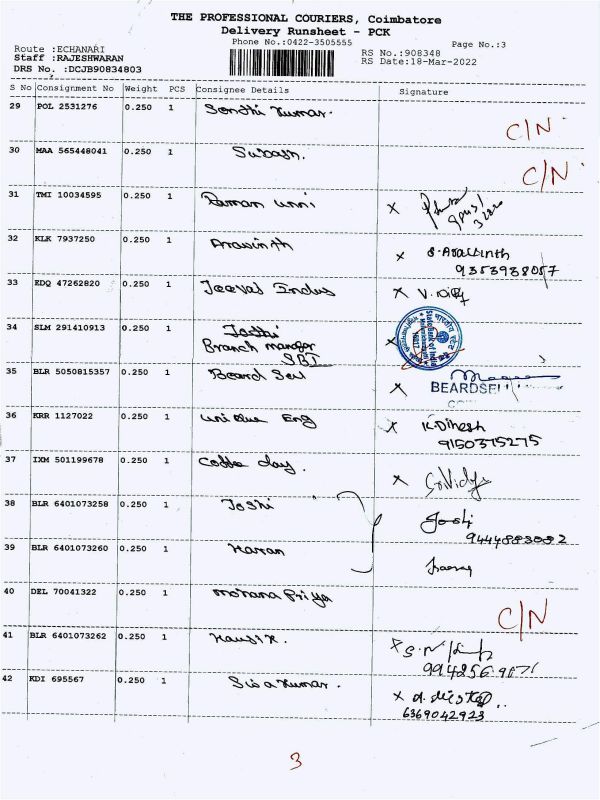 THE PROFESSIONAL COURIERS, Coimbatore
Delivery Runsheet - PCK
Phone No.:0422-3505555
Page No.:3
Route :ECHANARI
Staff :RAJESHWARAN
DRS No. :DCJB90834803
RS No.:908348
RS Date:18-Mar-2022
S No Consignment No Weight PCS Consignee Details Signature
29 POL 2531276 0.250 1 Senthi Kumar.
C/N
30 MAA 565448041 0.250 1 Subash.
C/N
31 TMI 10034595 0.250 1 Raman unni X
32 KLK 7937250 0.250 1 Aravinth X
9353938057
33 EDQ 47262820 0.250 1 Jeeval Indus X
34 SLM 291410913 0.250 1 Jothi X
Branch manager
SBI
35 BLR 5050815357 0.250 1 Beard Sell X
BEARDSELL
36 KRR 1127022 0.250 1 unique Eng X K.Dinesh
9150375275
37 IXM 501199678 0.250 1 day. X
38 BLR 6401073258 0.250 1 Joshi
9444883082
39 BLR 6401073260 0.250 1
40 DEL 70041322 0.250 1 mohana Priya
C/N
41 BLR 6401073262 0.250 1 X
42 KDI 695567 0.250 1 Siva Kumar. X
6369042923
3